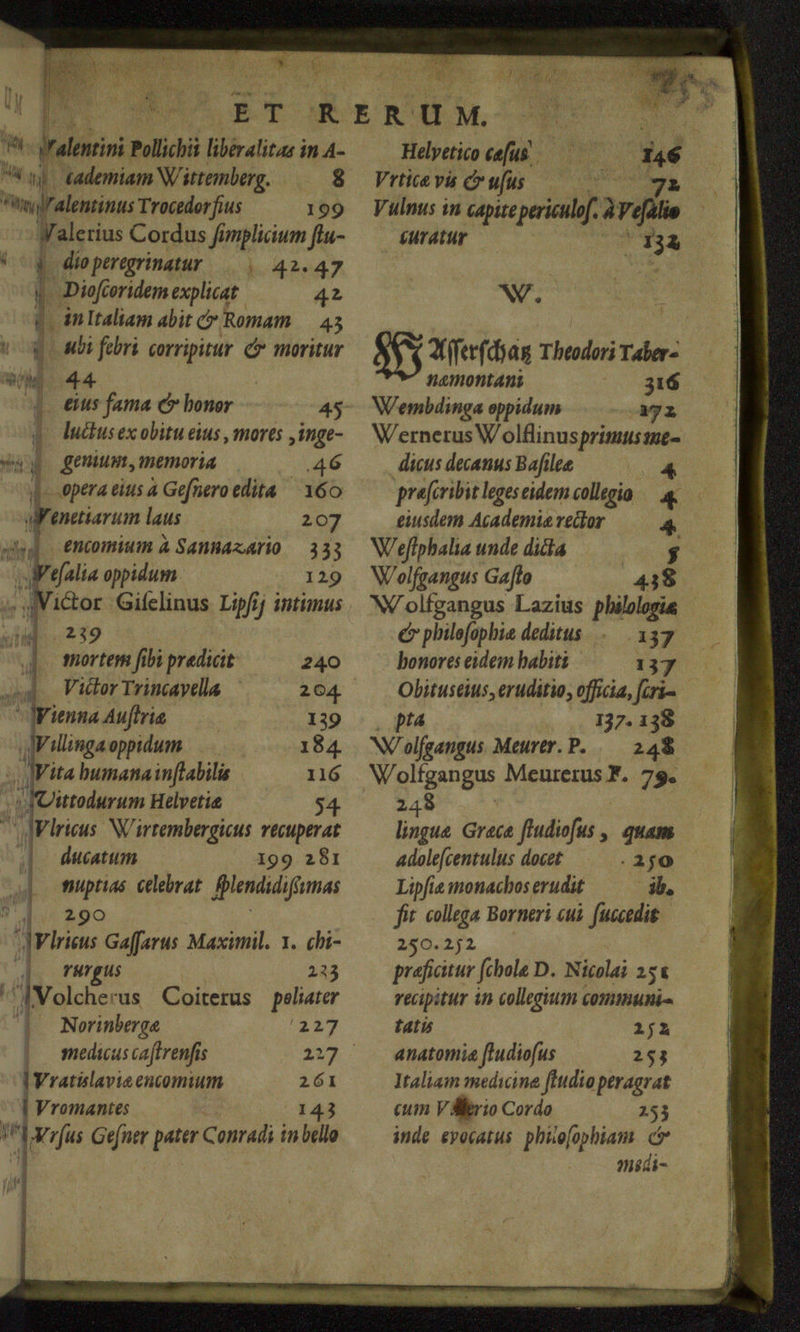 ET RERUM.
Valentini Pollichii liberalitas in A-
cademiam Wittemberg. 8
Valentinus Trocedorfius 199
Valerius Cordus ſimplicium ſtu-
dio peregrinatur 42.47
Dioſcoridem explicat 42
in Italiam abit & Romam 43
ubi febri corripitur & moritur
44
eius fama & honor 45
luctus ex obitu eius, mores, inge-
genium, memoria 46
opera eius à Geſnero edita 160
Venetiarum laus 207
encomium à Sannazario 333
Veſalia oppidum 129
Victor Giſelinus Lipſij intimus
239
mortem ſibi prædicit 240
Victor Trincavella 204
Vienna Auſtriæ 139
Villinga oppidum 184
Vita humana inſtabilis 116
Vittodurum Helvetiæ 54
Vlricus Wirtembergicus recuperat
ducatum 199 281
nuptias celebrat ſplendidiſſimas
290
Vlricus Gaſſarus Maximil. 1. chi-
rurgus 233
Volcherus Coiterus poliater
Norinbergæ 227
medicus caſtrenſis 227
Vratislaviæ encomium 261
Vromantes 143
Vrſus Geſner pater Conradi in bello
Helvetico cæſus 146
Vrticæ vis & uſus 72
Vulnus in capite periculoſ. à Veſalio
curatur 132
W.
Waſſerſchatz Theodori Taber-
næmontani 316
Wembdinga oppidum 172
Wernerus Wolflinus primus me-
dicus decanus Baſileæ 4
præſcribit leges eidem collegio 4
eiusdem Academiæ rector 4
Weſtphalia unde dicta 5
Wolfgangus Gaſto 438
Wolfgangus Lazius philologiæ
& philoſophiæ deditus 137
honores eidem habiti 137
Obitus eius, eruditio, officia, ſcri-
pta 137.138
Wolfgangus Meurer. P. 248
Wolfgangus Meurerus F. 79.
248
linguæ Græcæ ſtudioſus, quam
adoleſcentulus docet 250
Lipſiæ monachos erudit ib.
fit collega Borneri cui ſuccedit
250.252
præficitur ſcholæ D. Nicolai 251
recipitur in collegium communi-
tatis 252
anatomiæ ſtudioſus 253
Italiam medicinæ ſtudio peragrat
cum Valerio Cordo 253
inde evocatus philoſophiam &
medi-